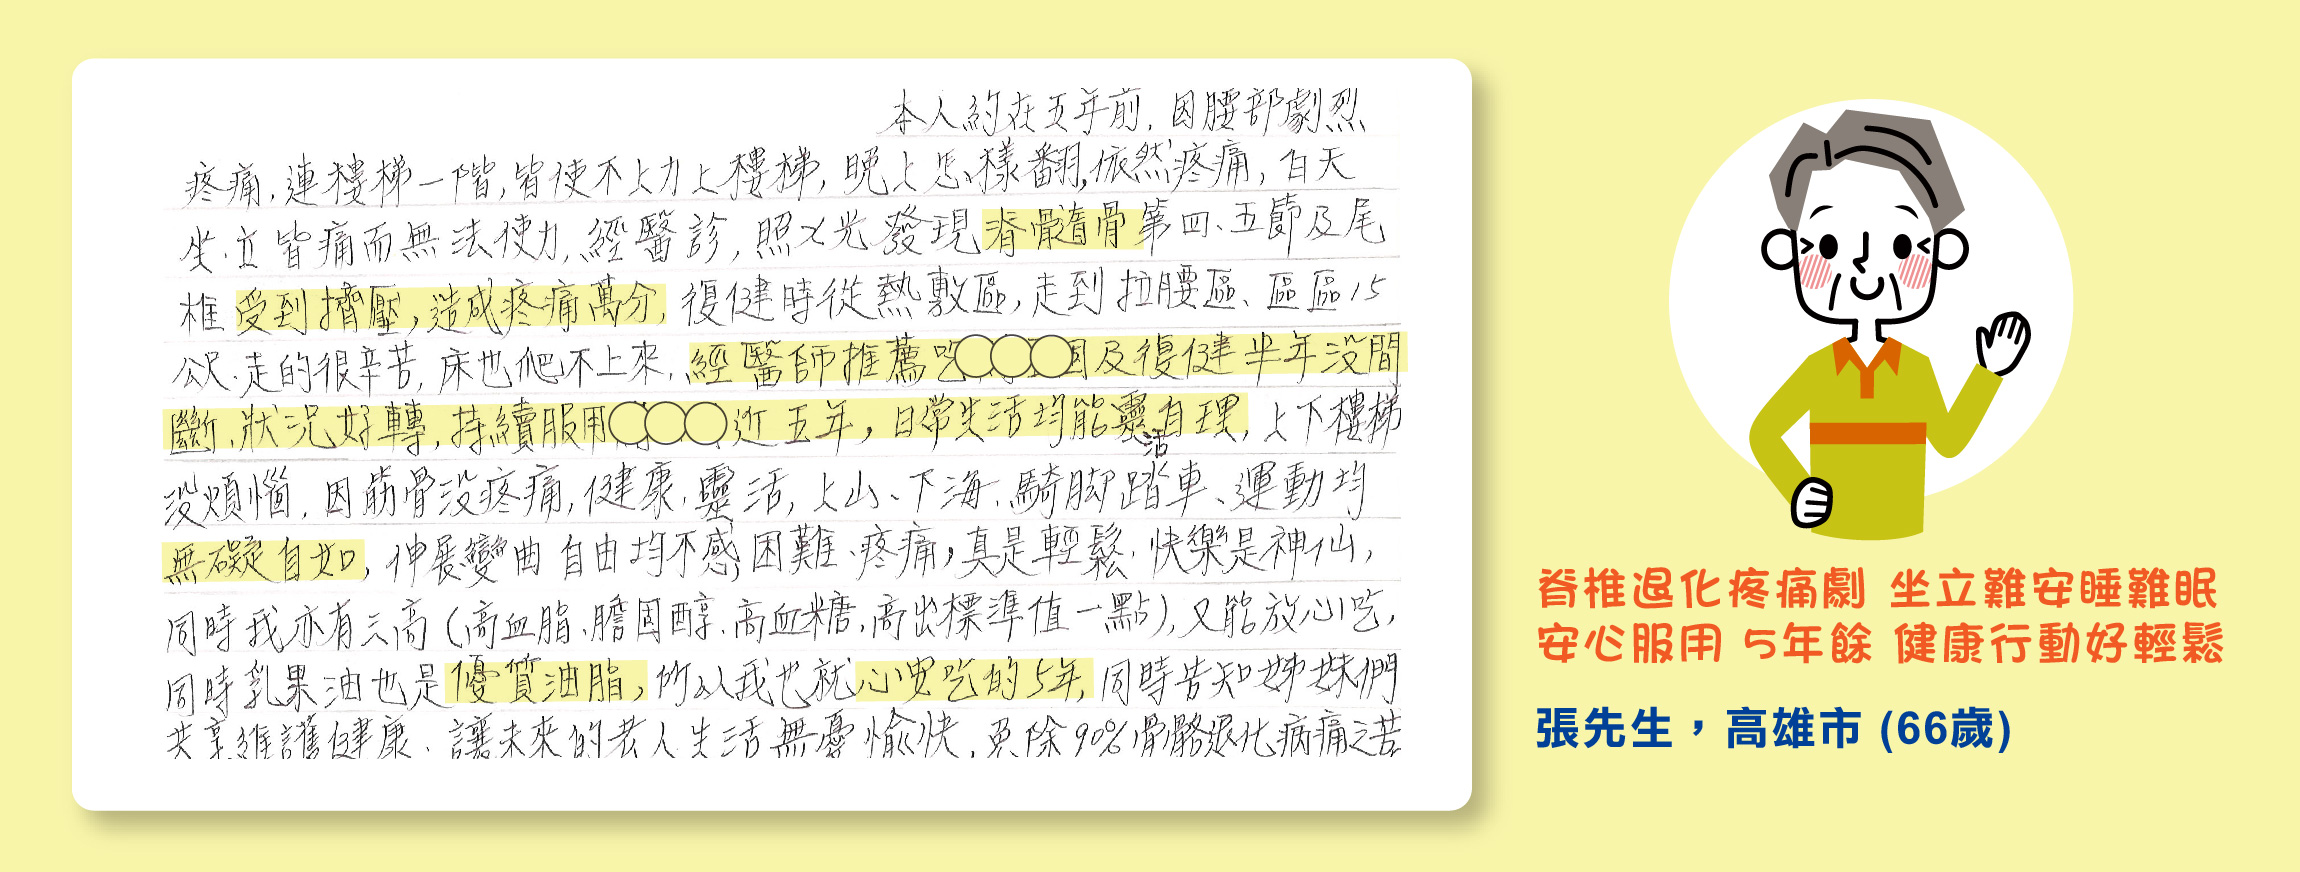 本人約在五年前,因腰部劇烈
疼痛,連樓梯一階,皆使不上力上樓梯,晚上怎樣翻,依然疼痛,白天
坐、立皆痛而無法使力,經醫診,照X光發現脊髓骨第四、五節及尾
椎受到擠壓,造成疼痛萬分,復健時從熱敷區,走到拉腰區、區區15
公尺、走的很辛苦,床也爬不上來,經醫師推薦吃〇〇〇因及復健半年沒間
斷、狀況好轉,持續服用〇〇〇近五年,日常生活均能靈活自理,上下樓梯
沒煩惱,因筋骨沒疼痛,健康、靈活,上山、下海、騎腳踏車、運動均
無礙自如,伸展彎曲自由均不感困難、疼痛,真是輕鬆、快樂是神仙,
同時我亦有三高(高血脂、膽固醇、高血糖,高出標準值一點),又能放心吃,
同時乳果油也是優質油脂,所以我也就心安吃的5年,同時告知姊妹們
共享維護健康、讓未來的老人生活無憂愉快,免除90%骨骼退化病痛之苦
脊椎退化疼痛劇 坐立難安睡難眠
安心服用 5年餘 健康行動好輕鬆
張先生,高雄市 (66歲)